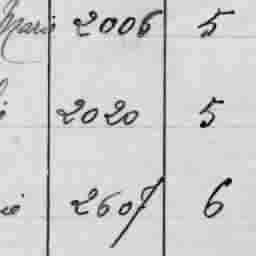 Marie 2006 5
2020 5
2607 6